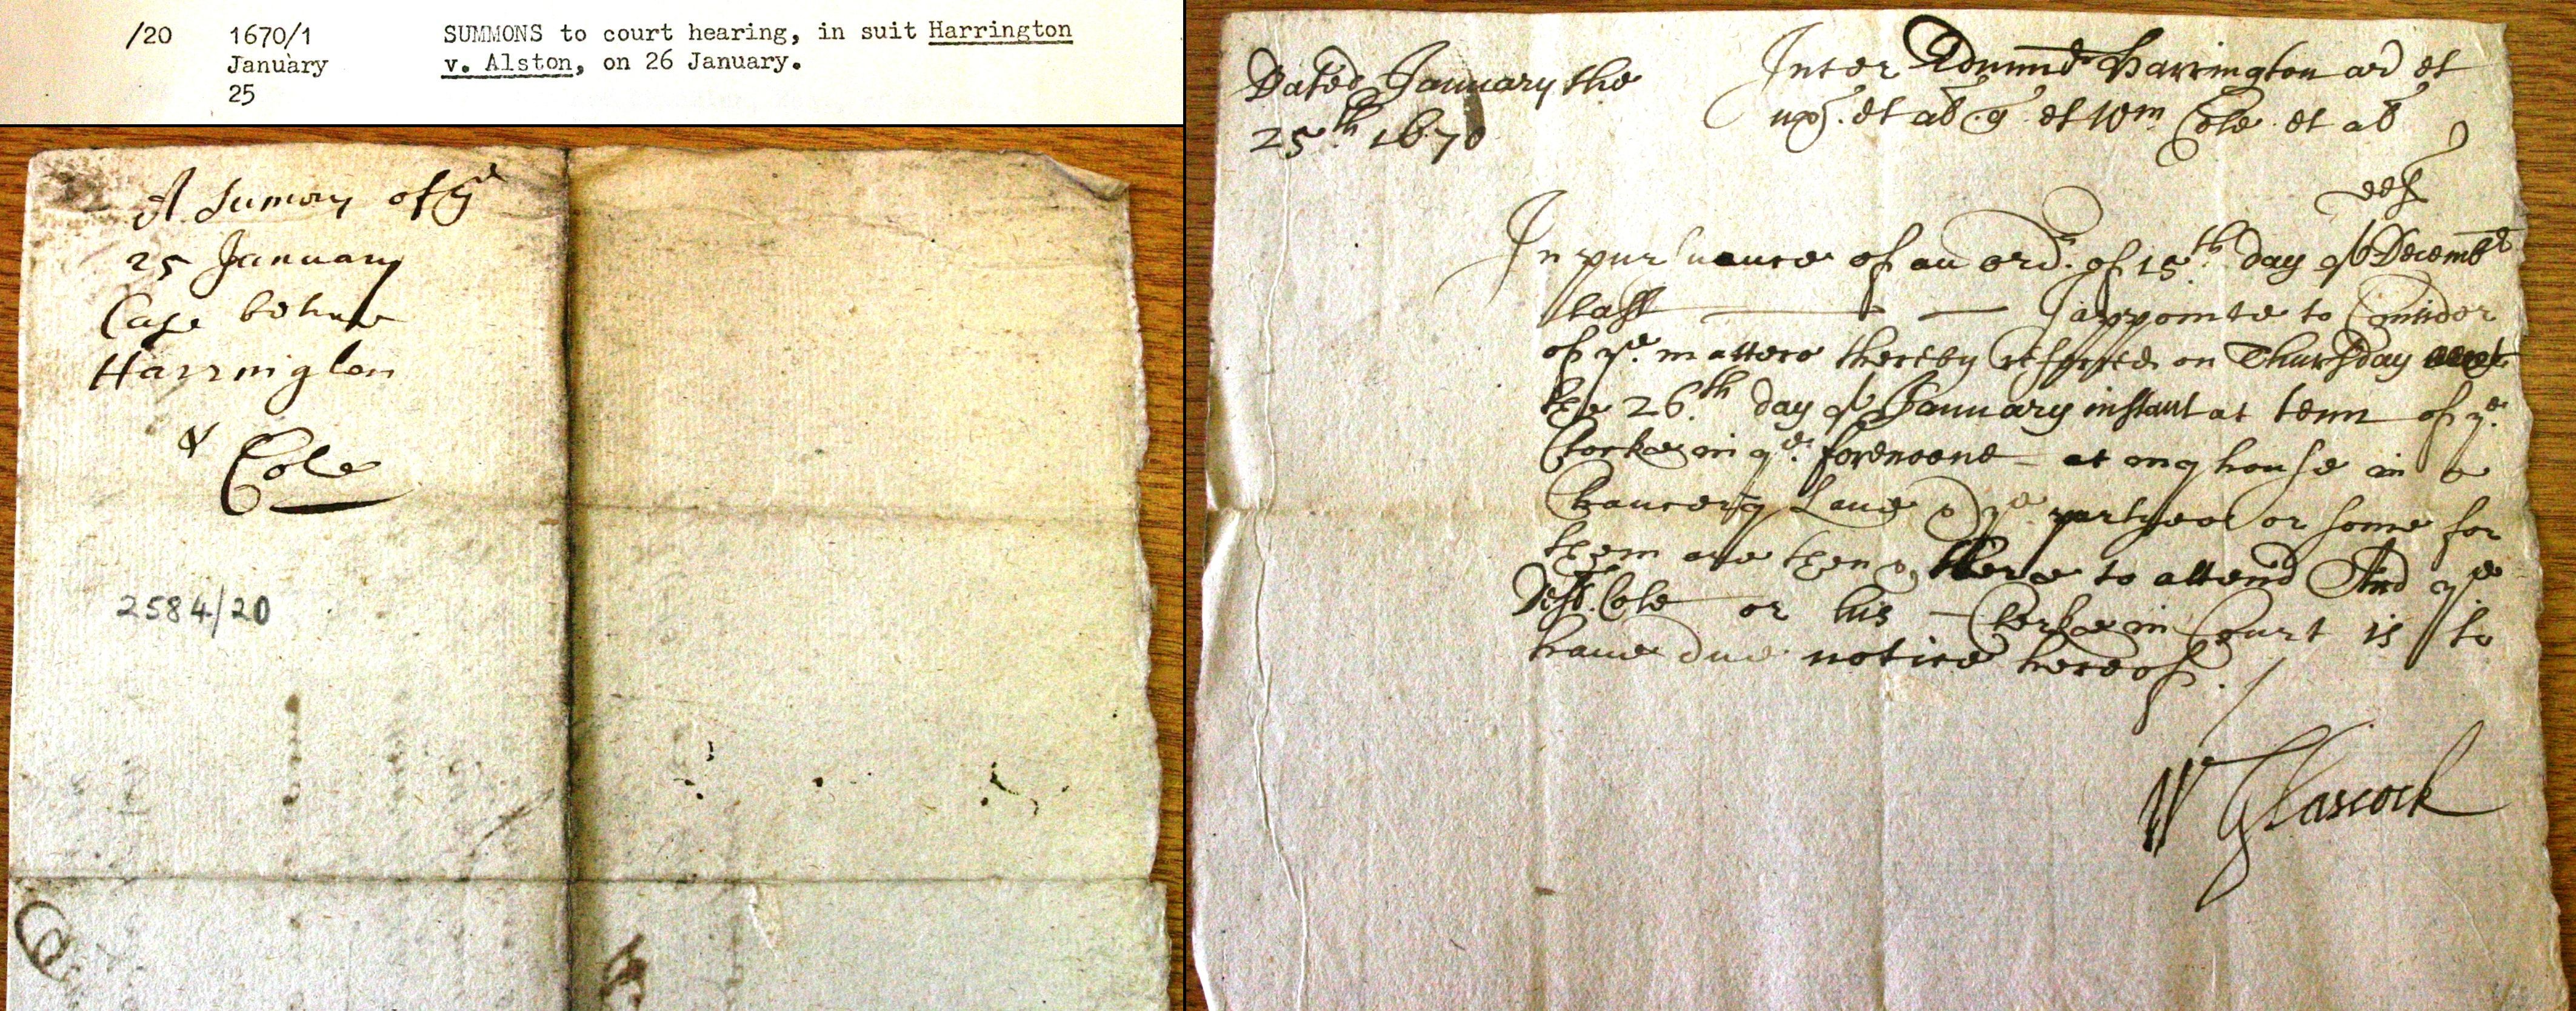 /20 1670/1 SUMMONS to court hearing, in suit Harrington
January v. Alston, on 26 January.
25
A Sumons of ye
25 January
Case betwne
Harrington
& Cole
2584/20
Dated January the
25th 1670
Inter Edmund Harrington ar et
ux et al q et Wm Cole et al
def
In pursuance of an ord. of 15th day of Decembr
last I appointe to Consider
of ye matters thereby referred on Thursday next
the 26th day of January instant at tenn of ye
Clocke in ye forenoone at my house in
Chancery Lane & ye partyes or some for
them are then & there to attend And ye
Deft. Cole or his Clerke in Court is to
have due notice hereof.
W Glascock